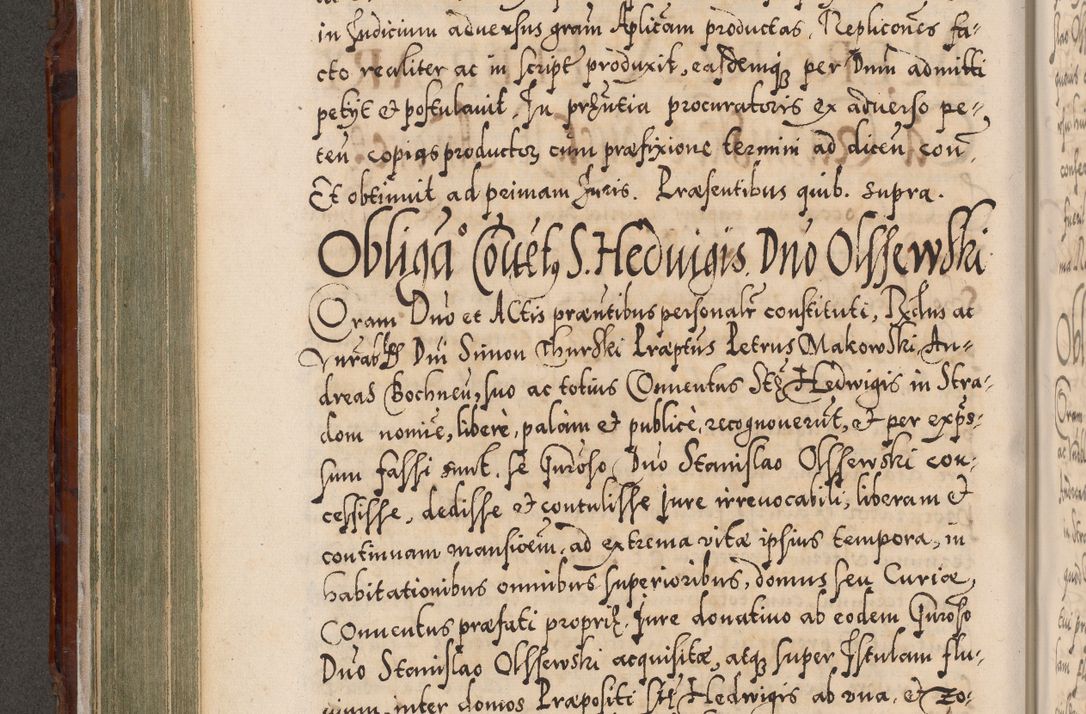 in Judicium adversus gram Aplicam productas, Replicones fa-
cto realiter ac in script produxit, easdemq per Dnm admitti
petyt et postulavit. In prȥntia procuratoris ex adverso pe-
ten copias productoȥ cum præfixione termini ad dicen con.
Et obtinuit ad primam Juris. Præsentibus quib. supra.
Obliga° Coūet9 S. Hedvigis. Dno Olssewski
Coram Dno et Actis præntibus personalr constituti, Rdus ac
Vnrables Dni Simon Thurski Præptus Petrus Makowski, An-
dreas Bochnen, suo ac totius Conventus Stȥ Hedwigis in Stra-
dom nomie, libere, palam et publicè, recognoverūt, et per exps-
sum fassi sunt. se Gnroso Dno Stanislao Olssewski con-
cessisse, dedisse et contulisse Jure irrevocabili, liberam et
continuam mansioem, ad extrema vitæ ipsius tempora, in
habitationibus omnibus superioribus, domus seu Curiæ,
Conventus præfati propriȥ. Jure donativo ab eodem Gnroso
Dno Stanislao Olssewski acquisitæ, atqȥ super Istulam flu-
vium, inter domos Præpositi Stȥ Hedwigis ab vna, et Zo-